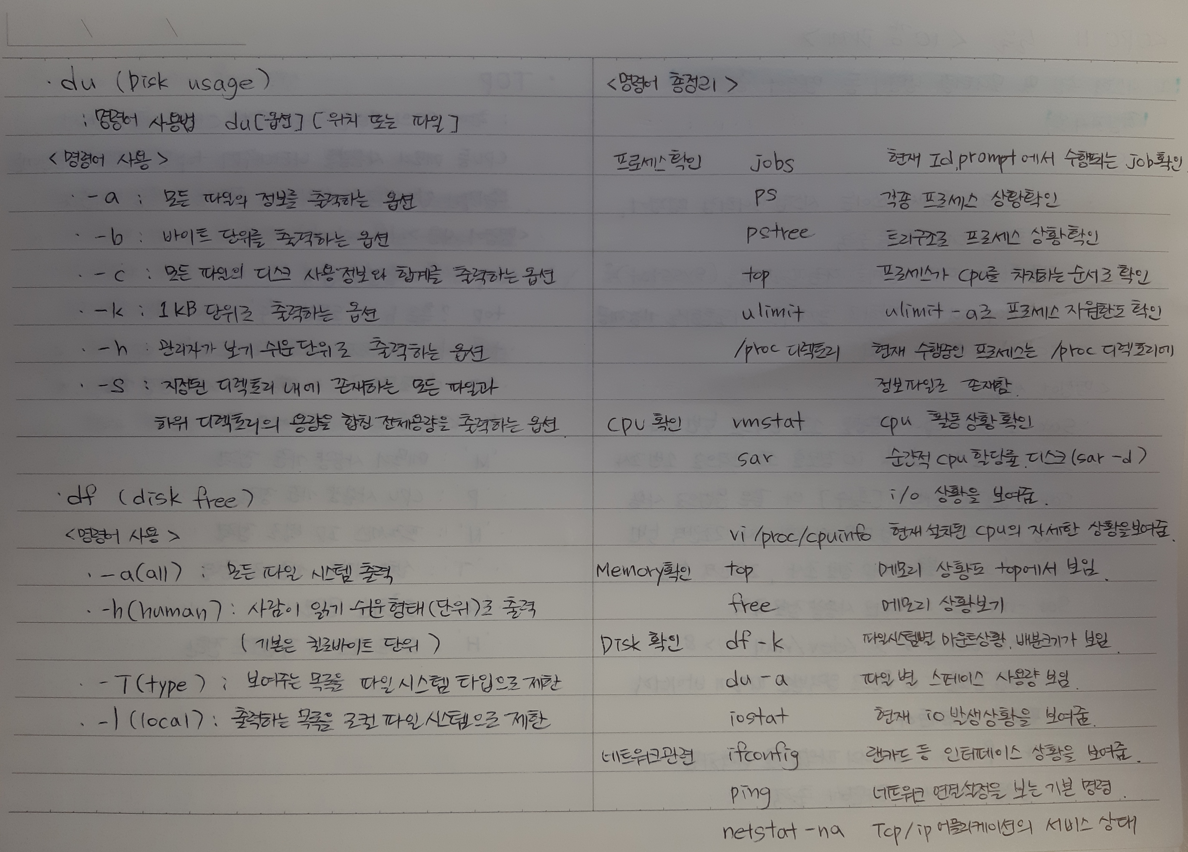 · du (Disk usage)
: 명령어 사용법 du [옵션] [위치 또는 파일]
<명령어 사용>
· -a : 모든 파일의 정보를 출력하는 옵션
· -b : 바이트 단위를 출력하는 옵션
· -c : 모든 파일의 디스크 사용정보와 합계를 출력하는 옵션
· -k : 1kB 단위로 출력하는 옵션
· -h : 관리자가 보기 쉬운단위로 출력하는 옵션
· -s : 지정된 디렉토리 내에 존재하는 모든 파일과
하위 디렉토리의 용량을 합친 전체용량을 출력하는 옵션.
· df (disk free)
<명령어 사용>
· -a(all) : 모든 파일 시스템 출력
· -h(human) : 사람이 읽기 쉬운 형태(단위)로 출력
(기본은 킬로바이트 단위)
· -T(type) : 보여주는 목록을 파일 시스템 타입으로 제한
· -l (local) : 출력하는 목록을 로컬 파일 시스템으로 제한
<명령어 총정리>
프로세스확인 jobs 현재 Id,prompt에서 수행되는 job확인
ps 각종 프로세스 상황확인
pstree 트리구조로 프로세스 상황확인
top 프로세스가 cpu를 차지하는 순서로 확인
ulimit ulimit -a로 프로세스 자원한도 확인
/proc 디렉토리 현재 수행중인 프로세스는 /proc 디렉토리에
정보파일로 존재함.
CPU 확인 vmstat cpu 활동 상황 확인
sar 순간적 cpu 할당률, 디스크(sar -d)
i/o 상황을 보여줌.
vi /proc/cpuinfo 현재 설치된 cpu의 자세한 상황을보여줌.
Memory확인 top 메모리 상황도 top에서 보임.
free 메모리 상황보기
Disk 확인 df -k 파일시스템별 마운트상황, 배분크기가 보임.
du -a 파일 별 스페이스 사용량 보임.
iostat 현재 io 발생상황을 보여줌.
네트워크관련 ifconfig 랜카드 등 인터페이스 상황을 보여줌.
ping 네트워크 연결설정을 보는 기본 명령.
netstat -na Tcp/ip 어플리케이션의 서비스 상태